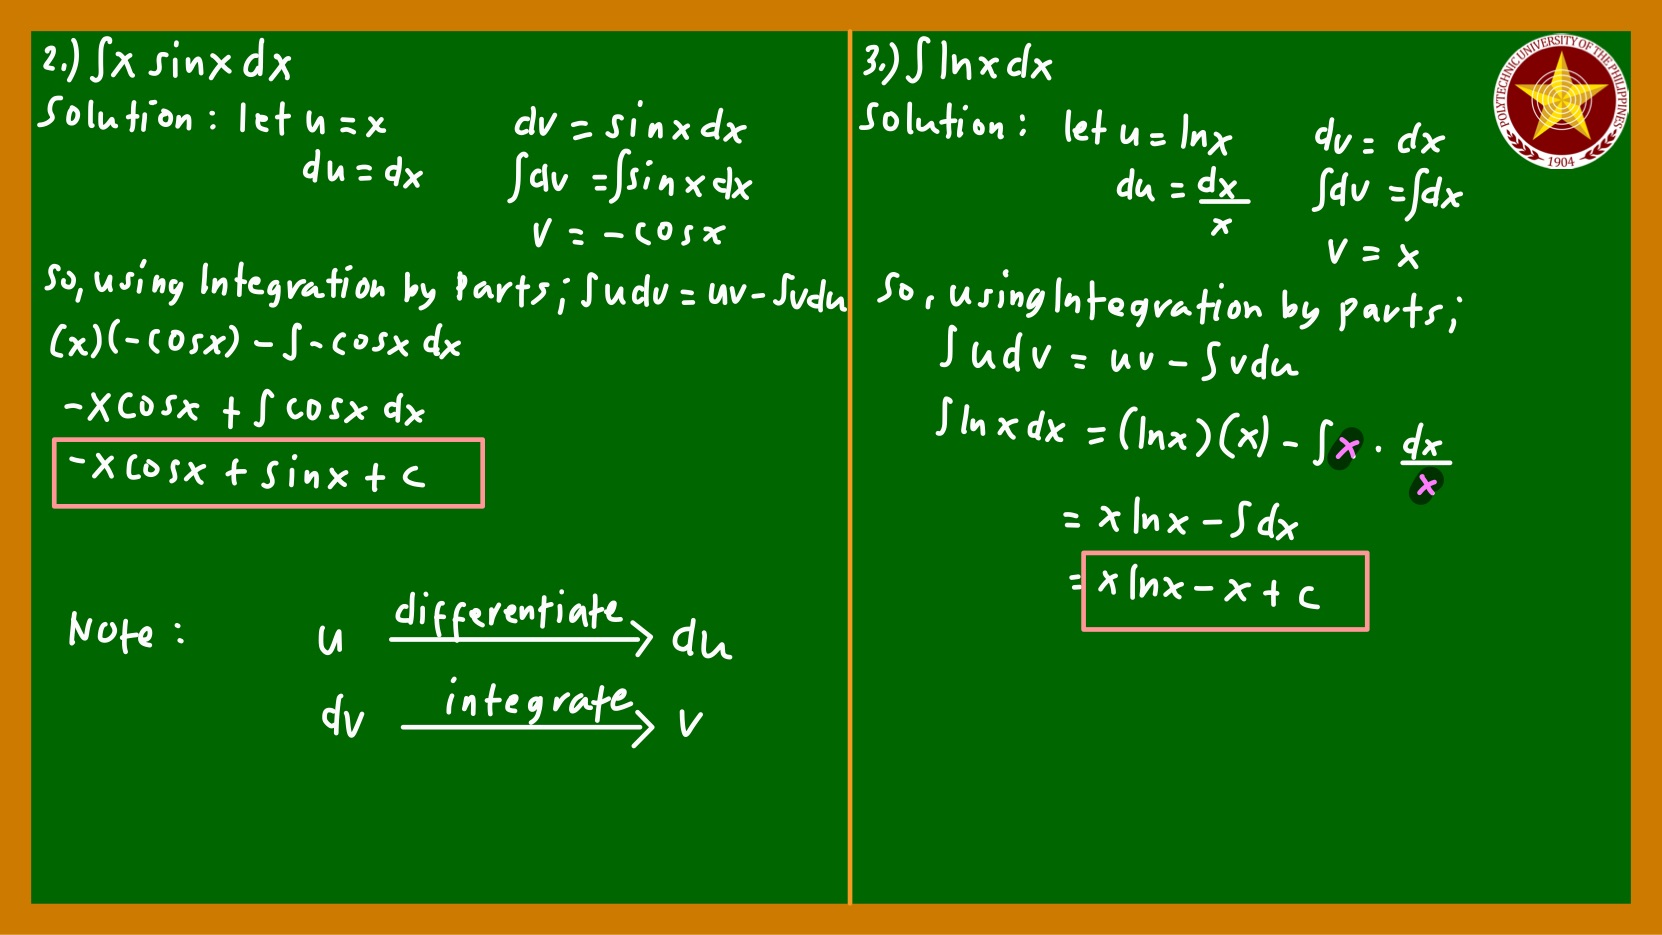 2.) ∫x sinx dx
Solution : let u = x
du = dx
dv = sinx dx
∫dv = ∫sinx dx
v = -cosx
So, using Integration by Parts; ∫udv = uv - ∫vdu
(x)(-cosx) - ∫-cosx dx
-xcosx + ∫cosx dx
-xcosx + sinx + c
Note :
u differentiate du
dv integrate v
3.) ∫lnx dx
Solution : let u = lnx
du = dx/x
dv = dx
∫dv = ∫dx
v = x
So, using Integration by parts;
∫udv = uv - ∫vdu
∫lnx dx = (lnx)(x) - ∫x · dx/x
= x lnx - ∫dx
= x lnx - x + c
POLYTECHNIC UNIVERSITY OF THE PHILIPPINES
1904